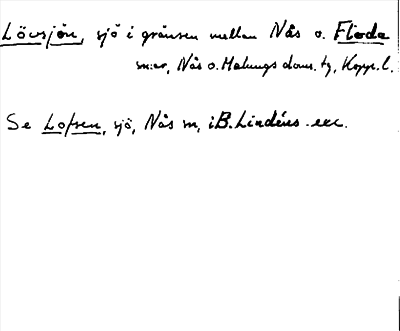 Lövsjön, sjö i gränsen mellan Nås o. Floda
m:er, Nås o. Malungs doms. tg, Kopp. l.
Se Lofsen, sjö, Nås m, i B. Lindéns exc.